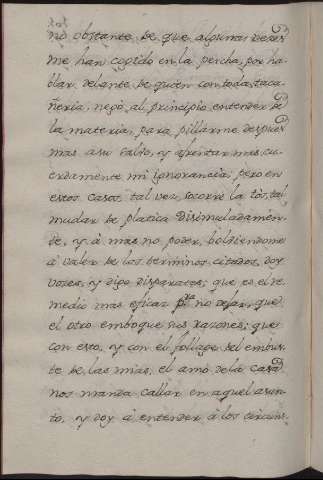 no obstante de que algunas vezes
me han cogido en la percha, por ha-
blar delante de quien con toda taca-
ñeria, negò al principio entender de
la materia, para pillarme despues
mas a su salvo, y afrentar mas cu-
erdamente mi ignorancia; pero en
estos casos, tal vez, socorre la tòs, tal
mudar de platica disimuladamen-
te, y à mas no poder, bolviendome
à valer de los terminos citados, doy
vozes, y digo disparates; que es el re-
medio mas eficaz pra. no dejar, que
el otro emboque sus razones; que
con esto, y con el follage del embus-
te de las mias, el amo de la casa
nos manda callar en aquel asun-
to, y doy à entender à los circuns-